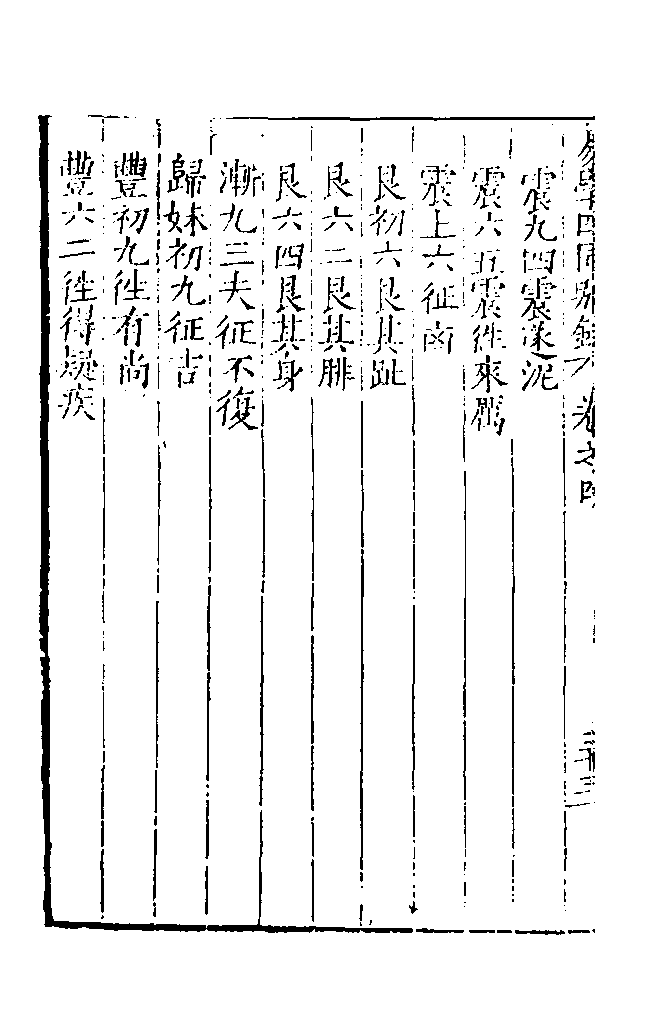 易學四同別錄 卷之四 三十三
震九四震遂泥
震六五震徃來厲
震上六征凶
艮初六艮其趾
艮六二艮其腓
艮六四艮其身
漸九三夫征不復
歸妹初九征吉
豐初九徃有尚
豐六二徃得疑疾